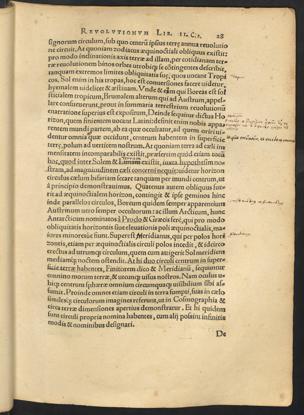 REVOLUTIONVM LIB. II. 28
signorum circulum, sub quo centrũ ipsius terræ annua reuolutio
ne circuit. At quoniam zodiacus æquinoctiali obliquus existit:
pro modo inclinationis axis terræ ad illam, per cotidianam ter-
ræ reuolutionem binos orbes utrobicp se cõtingentes describit,
tanquam extremos limites obliquitatis suæ, quos uocant Tropi
cos, Sol enim in his tropas, hoc est conuersiones facere uidetur,
hyemalem uidelicet & æstiuam. Vnde & eum qui Boreas est sol
sticialem tropicum, Brumalem alterum qui ad Austrum, appel-
lare consueuerunt, prout in summaria terrestrium reuolutionũ
enarratione superius est expositum. Deinde sequitur dictus Ho
rizon, quem finientem uocant Latini: definit enim nobis appa
rentem mundi partem, ab ea quæ occultatur, ad quem oriri ui-
dentur omnia quæ occidunt, centrum habentem in superficie
terræ, polum ad uerticem nostrum. At quoniam terra ad cæli im
mensitatem incomparabilis existit, præsertim quòd etiam totũ
hoc, quod inter Solem & Lunam existit, iuxta hypothesim no-
stram, ad magnitudinem cæli concerni nequit, uidetur horizon
circulus cælum bifariam secare tanquam per mundi centrum, ut
à principio demonstrauimus. Quatenus autem obliquus fue-
rit ad æquinoctialem horizon, contingit & ipse geminos hinc
inde parallelos circulos, Boreum quidem semper apparentium,
Austrum uero semper occultorum: ac illum Arcticum, hunc
Antarcticum nominatos à Proclo & Græcis ferè, qui pro modo
obliquitatis horizontis siue eleuationis poli æquinoctialis, ma-
iores minoresue fiunt. Superest Meridianus, qui per polos hori
zontis, etiam per æquinoctialis circuli polos incedit, & idcirco
erectus ad utrumcp circulum, quem cum attigerit Sol meridiem
mediamcp noctem ostendit. At hi duo circuli centrum in super-
ficie terræ habentes, Finitorem dico & Meridianũ, sequuntur
omnino motum terræ, & utcuncp uisus nostros. Nam oculus u-
bicp centrum sphæræ omnium circumquacp uisibilium sibi as-
sumit. Proinde omnes etiam circuli in terra sumpti, suas in cælo
similescp circulorum imagines referunt, ut in Cosmographia &
circa terræ dimensiones apertius demonstratur. Et hi quidem
sunt circuli propria nomina habentes, cum alij possint infinitis
modis & nominibus designari.
De